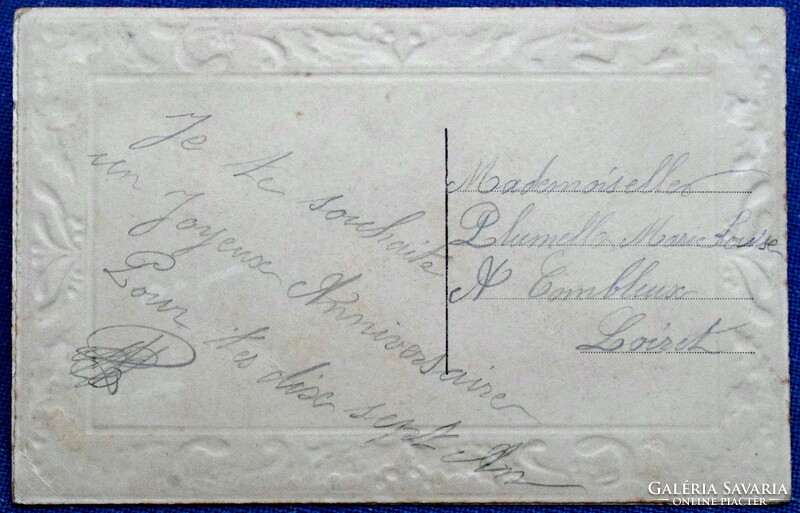 Je te souhaite
un Joyeux Anniversaire
Pour tes dix sept An
Mademoiselle
Plumelle Marie Louise
A Embleux
Loiret
GALÉRIA SAVARIA
ONLINE PIACTÉR